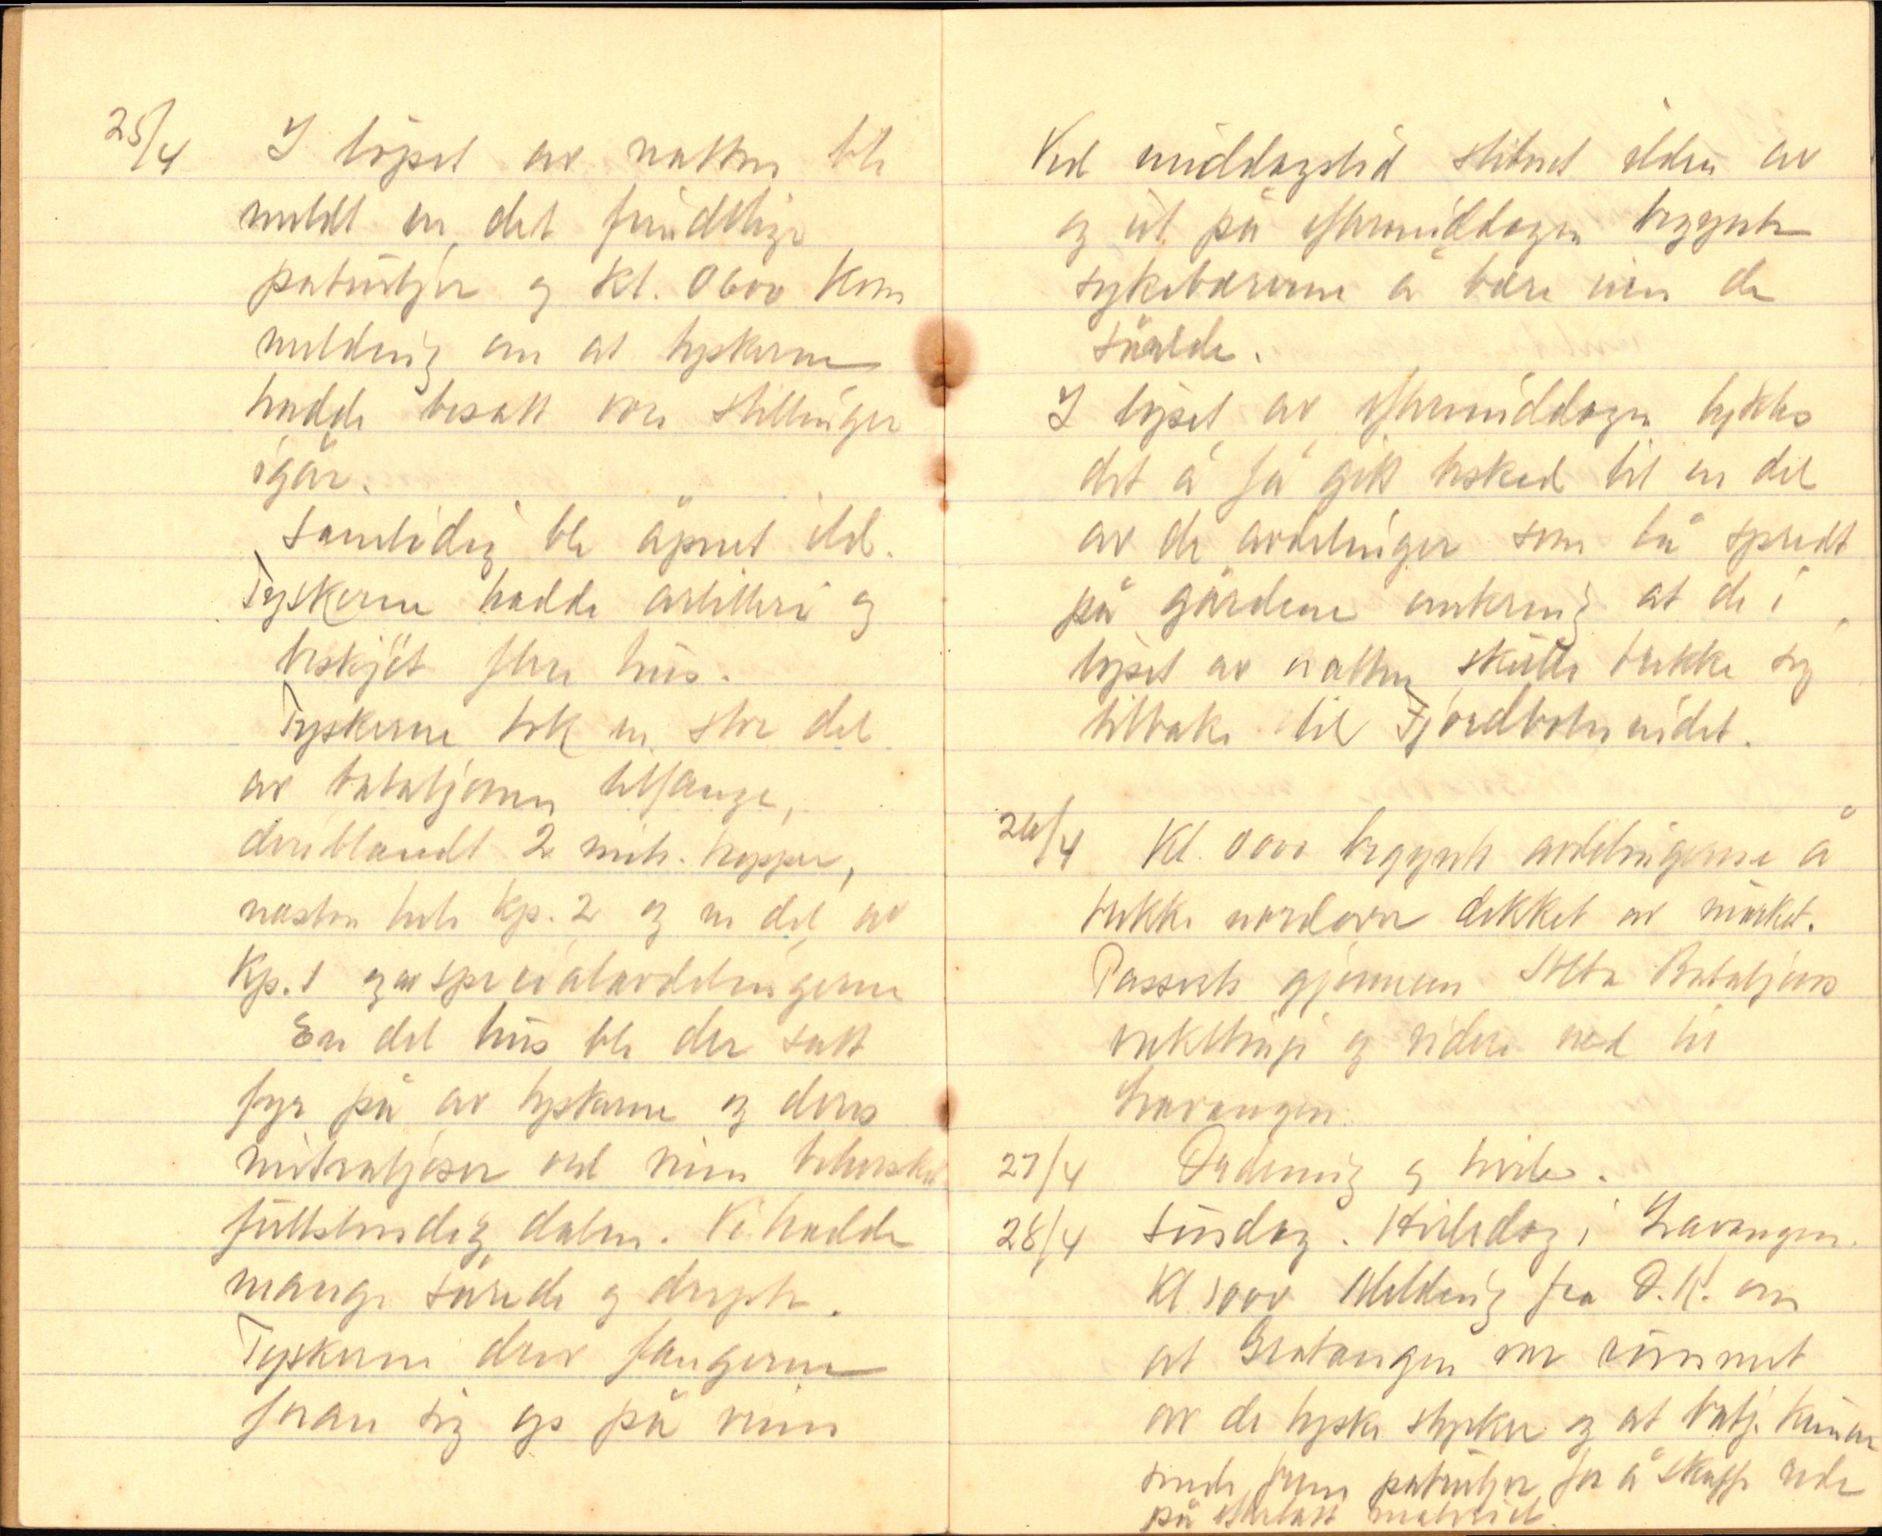 25/4 I løpet av natten ble
meldt en del fiendtlige
patruljer og kl. 0600 kom
melding om at tyskerne
hadde besatt våre stillinger
igår.
Samtidig ble åpnet ild.
Tyskerne hadde artilleri og
beskjøt flere hus.
Tyskerne tok en stor del
av bataljonen tilfange,
deriblandt 2 mitr. tropper,
næsten hele kp. 2 og en del av
Kp. 1 og av specialavdelingerne
En del hus ble der satt
fyr på av tyskerne og deres
mitraljøser ved veien behersket
fullstendig dalen. Vi hadde
mange sårede og drepte.
Tyskerne drev fangerne
foran sig op på veien
Ved middagstid stilnet ilden av
og ut på eftermiddagen begynte
sykebærerne å bære inn de
sårede.
I løpet av eftermiddagen lykkes
det å få gitt besked til en del
av de avdelinger som lå spredt
på gårdene omkring at de i
løpet av natten skulle trekke sig
tilbake til Fjordbotneidet.
26/4 Kl. 0000 begynte avdelingerne å
trekke nordover dekket av mørket.
Passerte gjennem Alta Bataljons
vaktlinje og videre ned til
Lavangen.
27/4 Ordning og hvile.
28/4 Søndag. Hviledag i Lavangen.
Kl. 1000 Melding fra D.K. om
at Gratangen var rømmet
av de tyske styrker og at batj. kunne
sende frem patruljer for å skaffe rede
på efterlatt materiel.